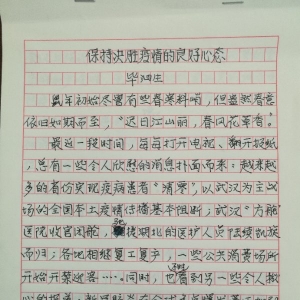 保持决胜疫情的良好心态
毕
鼠年初始尽管有些春寒料峭，但盎然春意
依旧如期而至，“迟日江山丽，春风花草香”。
最近一段时间，每每打开电视、翻开报纸，
总有一些令人欣慰的消息扑面而来：越来越
多的省份实现疫病患者“清零”，以武汉为主战
场的全国本土疫情传播基本阻断；武汉“方舱”
医院收官闭舱，驰援湖北的医护人员陆续凯旋
而归；各地相继复工复产，一些公共消费场所
开始开幕迎客……同时，也看到另一些令人揪